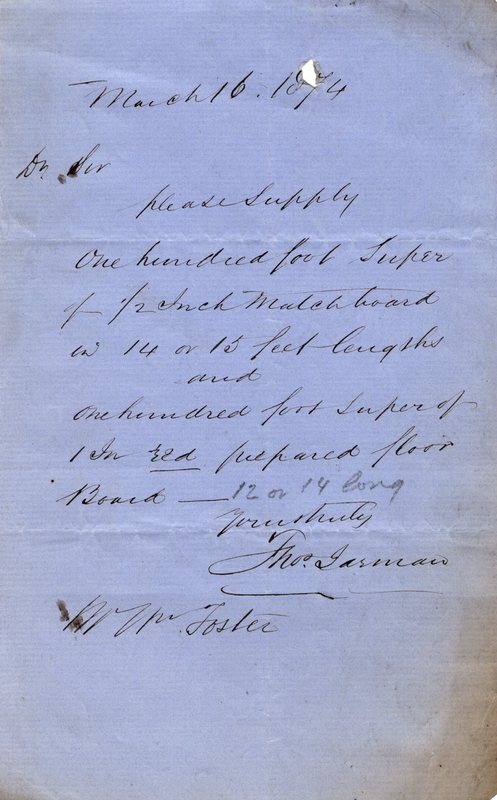 March 16. 1874
Dr Sir
please Supply
One hundred foot Super
of 1/2 Inch Matchboard
in 14 or 15 feet lengths
and
one hundred foot Super of
1 In red prepared floor
Board — 12 or 14 long
Yours truly
Thos. Jarman
Mr Wm. Foster